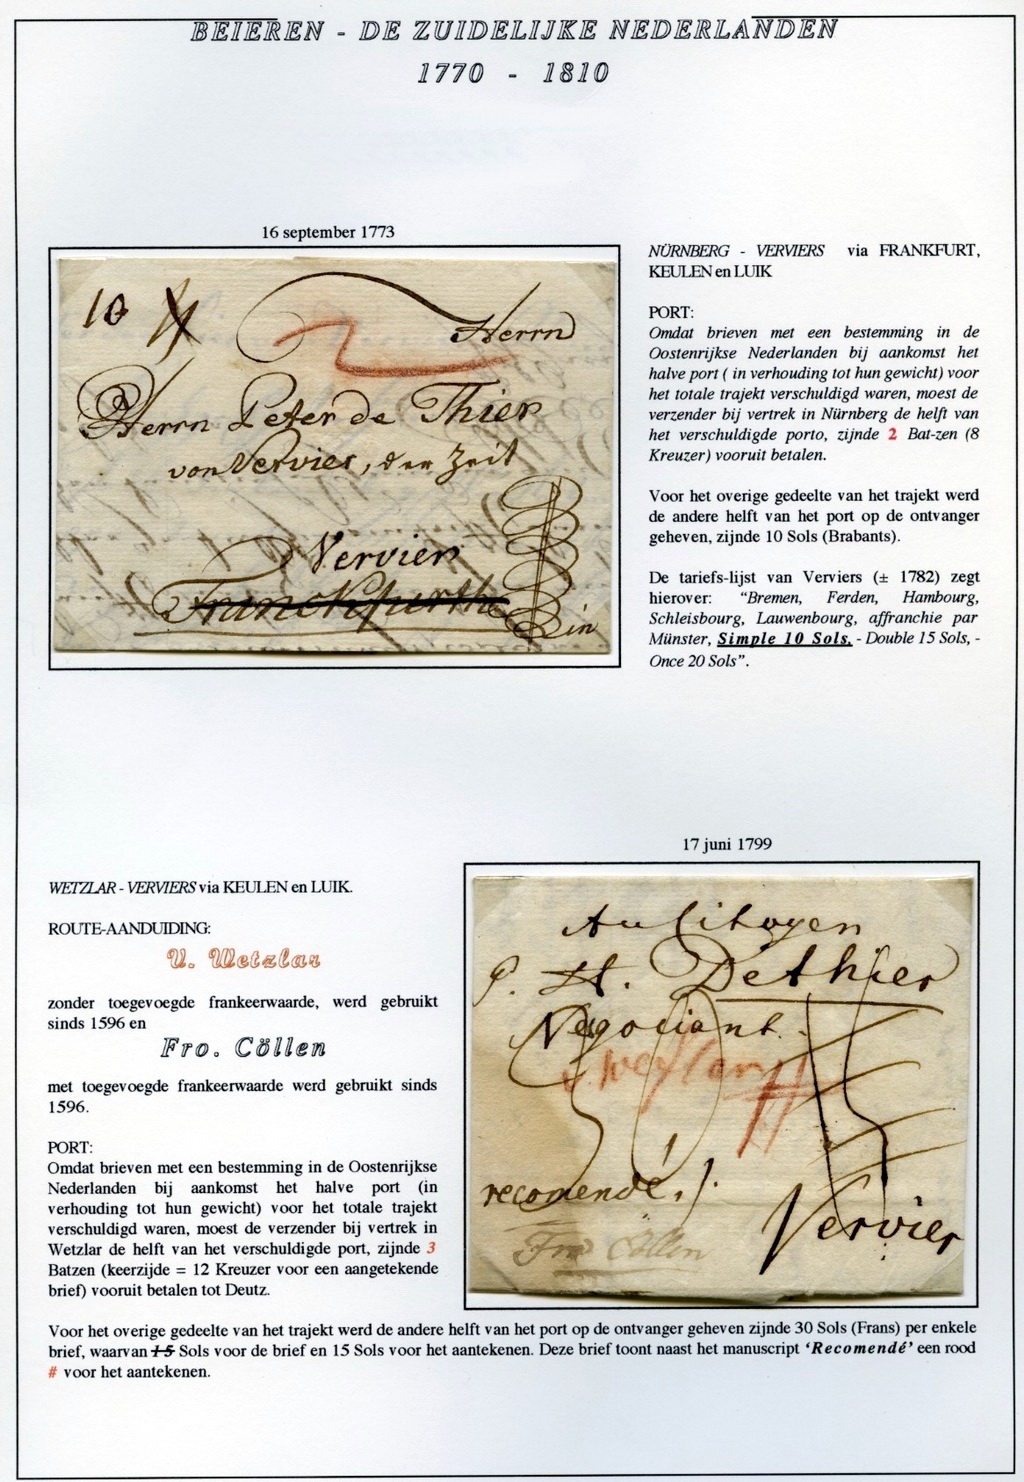 BEIEREN - DE ZUIDELIJKE NEDERLANDEN
1770 - 1810
16 september 1773
10
Herrn
Herrn Peter de Thier
von Vervier, der Zeit
Vervier
Franckfurth
in
NÜRNBERG - VERVIERS via FRANKFURT,
KEULEN en LUIK
PORT:
Omdat brieven met een bestemming in de
Oostenrijkse Nederlanden bij aankomst het
halve port ( in verhouding tot hun gewicht) voor
het totale trajekt verschuldigd waren, moest de
verzender bij vertrek in Nürnberg de helft van
het verschuldigde porto, zijnde 2 Bat-zen (8
Kreuzer) vooruit betalen.
Voor het overige gedeelte van het trajekt werd
de andere helft van het port op de ontvanger
geheven, zijnde 10 Sols (Brabants).
De tariefs-lijst van Verviers (± 1782) zegt
hierover: "Bremen, Ferden, Hambourg,
Schleisbourg, Lauwenbourg, affranchie par
Münster, Simple 10 Sols, - Double 15 Sols, -
Once 20 Sols".
WETZLAR - VERVIERS via KEULEN en LUIK.
ROUTE-AANDUIDING:
V. Wetzlar
zonder toegevoegde frankeerwaarde, werd gebruikt
sinds 1596 en
Fro. Cöllen
met toegevoegde frankeerwaarde werd gebruikt sinds
1596.
PORT:
Omdat brieven met een bestemming in de Oostenrijkse
Nederlanden bij aankomst het halve port (in
verhouding tot hun gewicht) voor het totale trajekt
verschuldigd waren, moest de verzender bij vertrek in
Wetzlar de helft van het verschuldigde port, zijnde 3
Batzen (keerzijde = 12 Kreuzer voor een aangetekende
brief) vooruit betalen tot Deutz.
17 juni 1799
Au Citoyen
P. H. Dethier
Negociant.
v. Wetzlar #
recomendé
Vervier
Fro Cöllen
Voor het overige gedeelte van het trajekt werd de andere helft van het port op de ontvanger geheven zijnde 30 Sols (Frans) per enkele
brief, waarvan 15 Sols voor de brief en 15 Sols voor het aantekenen. Deze brief toont naast het manuscript 'Recomendé' een rood
# voor het aantekenen.